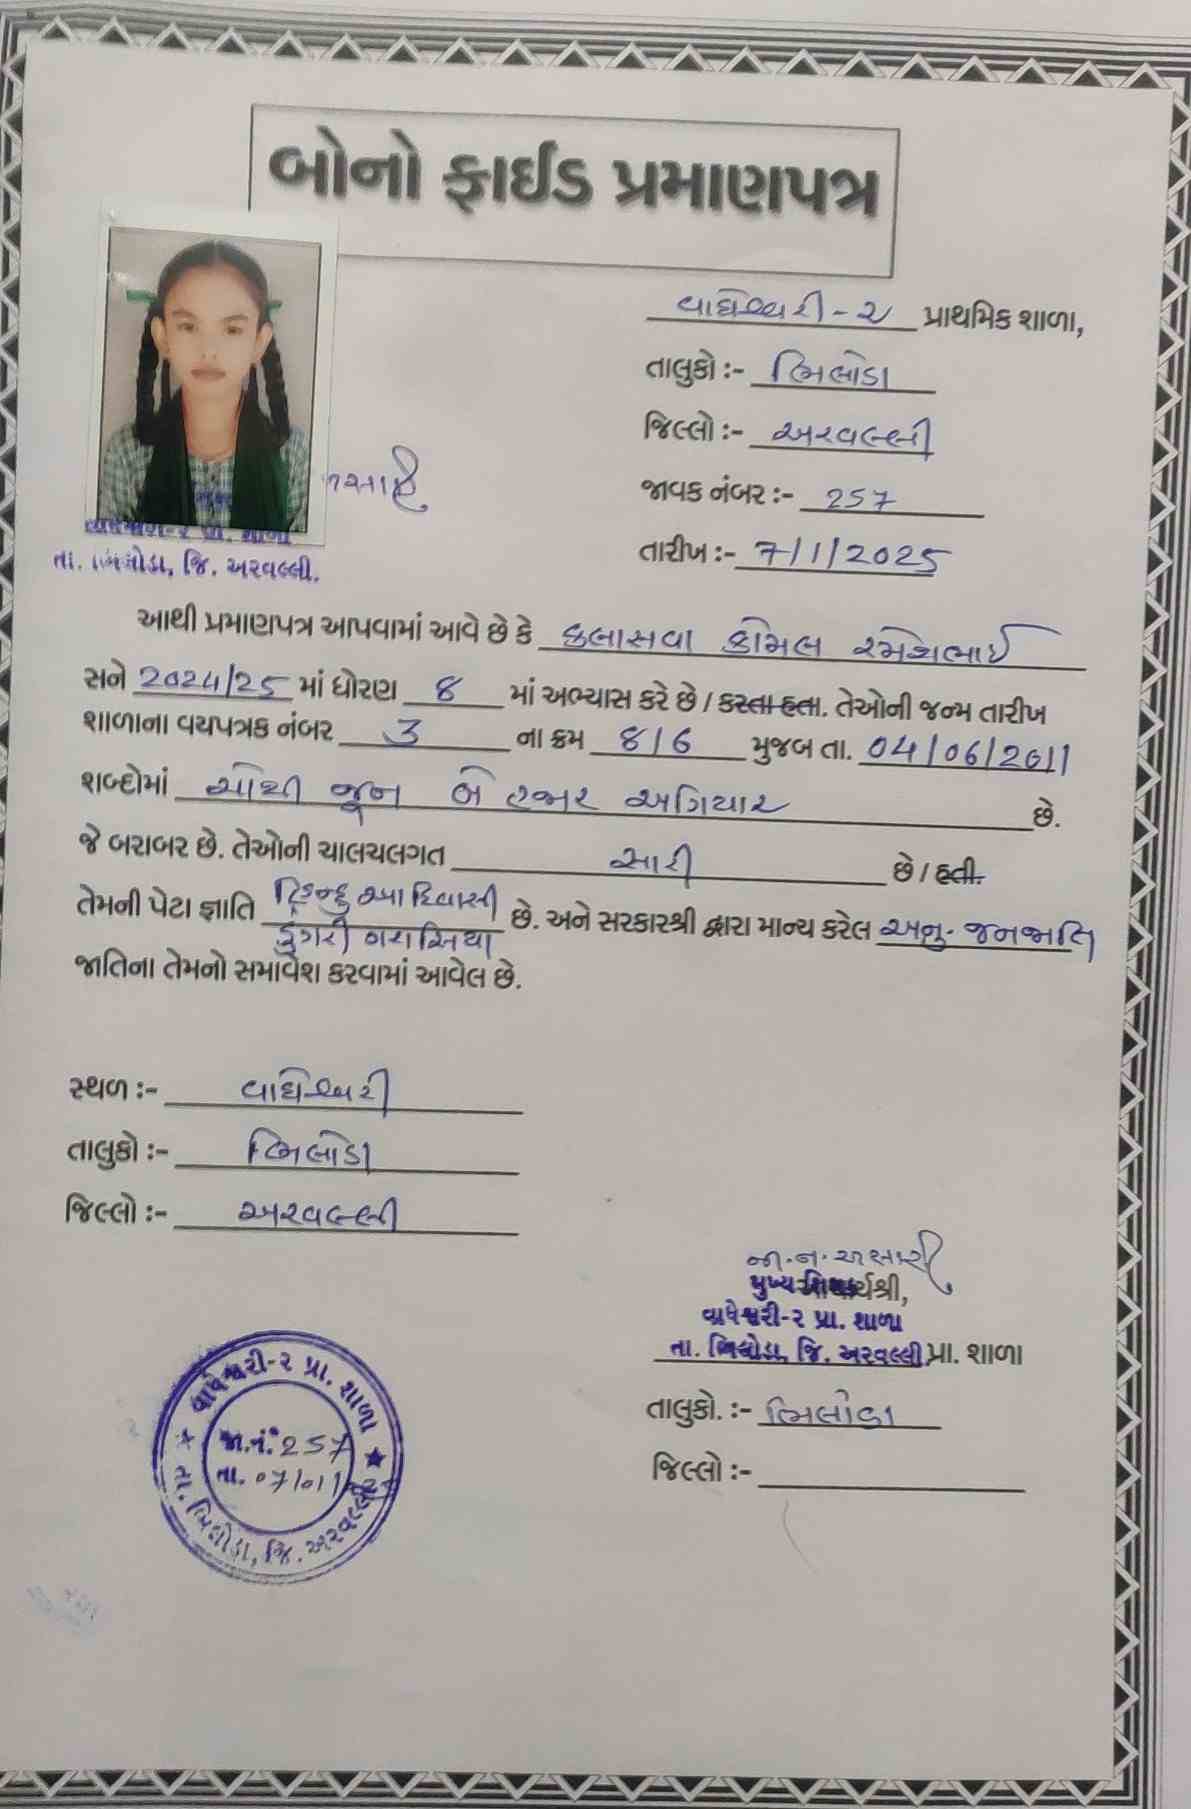 બોનો ફાઈડ પ્રમાણપત્ર
વાઘેશ્વરી-૨ પ્રાથમિક શાળા,
તાલુકો :- ભિલોડા
જિલ્લો :- અરવલ્લી
જાવક નંબર :- 257
તારીખ :- 7/1/2025
વાઘેશ્વરી-ર પ્રા. શાળા
તા. ભિલોડા, જિ. અરવલ્લી.
આથી પ્રમાણપત્ર આપવામાં આવે છે કે કલાસવા કોમલ રમેશભાઈ
સને 2024/25 માં ધોરણ ૪ માં અભ્યાસ કરે છે / કરતા હતા. તેઓની જન્મ તારીખ
શાળાના વયપત્રક નંબર 3 ના ક્રમ ૪૧6 મુજબ તા. 04/06/2011
શબ્દોમાં ચોથી જૂન બે હજાર અગિયાર છે.
જે બરાબર છે. તેઓની ચાલચલગત સારી છે / હતી.
તેમની પેટા જ્ઞાતિ હિન્દુ આદિવાસી ડુંગરી ગરાસિયા છે. અને સરકારશ્રી દ્વારા માન્ય કરેલ અનુ. જનજાતિ
જાતિના તેમનો સમાવેશ કરવામાં આવેલ છે.
સ્થળ :- વાઘેશ્વરી
તાલુકો :- ભિલોડા
જિલ્લો :- અરવલ્લી
જા.ન.અસારી
મુખ્ય
વાઘેશ્વરી-ર પ્રા. શાળા
તા. ભિલોડા, જિ. અરવલ્લી. પ્રા. શાળા
તાલુકો. :- ભિલોડા
જિલ્લો :-
વાઘેશ્વરી-ર પ્રા. શાળા
જા.નં. 257
તા. 07/01/
તા. ભિલોડા, જિ. અરવલ્લી